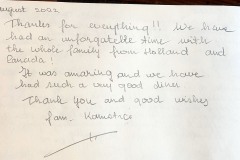 august 2022
Thanks for everything!! We have
had an unforgatelle time with
the whole family from Holland and
Canada!
It was amazing and we have
had such a very good diner
Thank you and good wishes
fam.